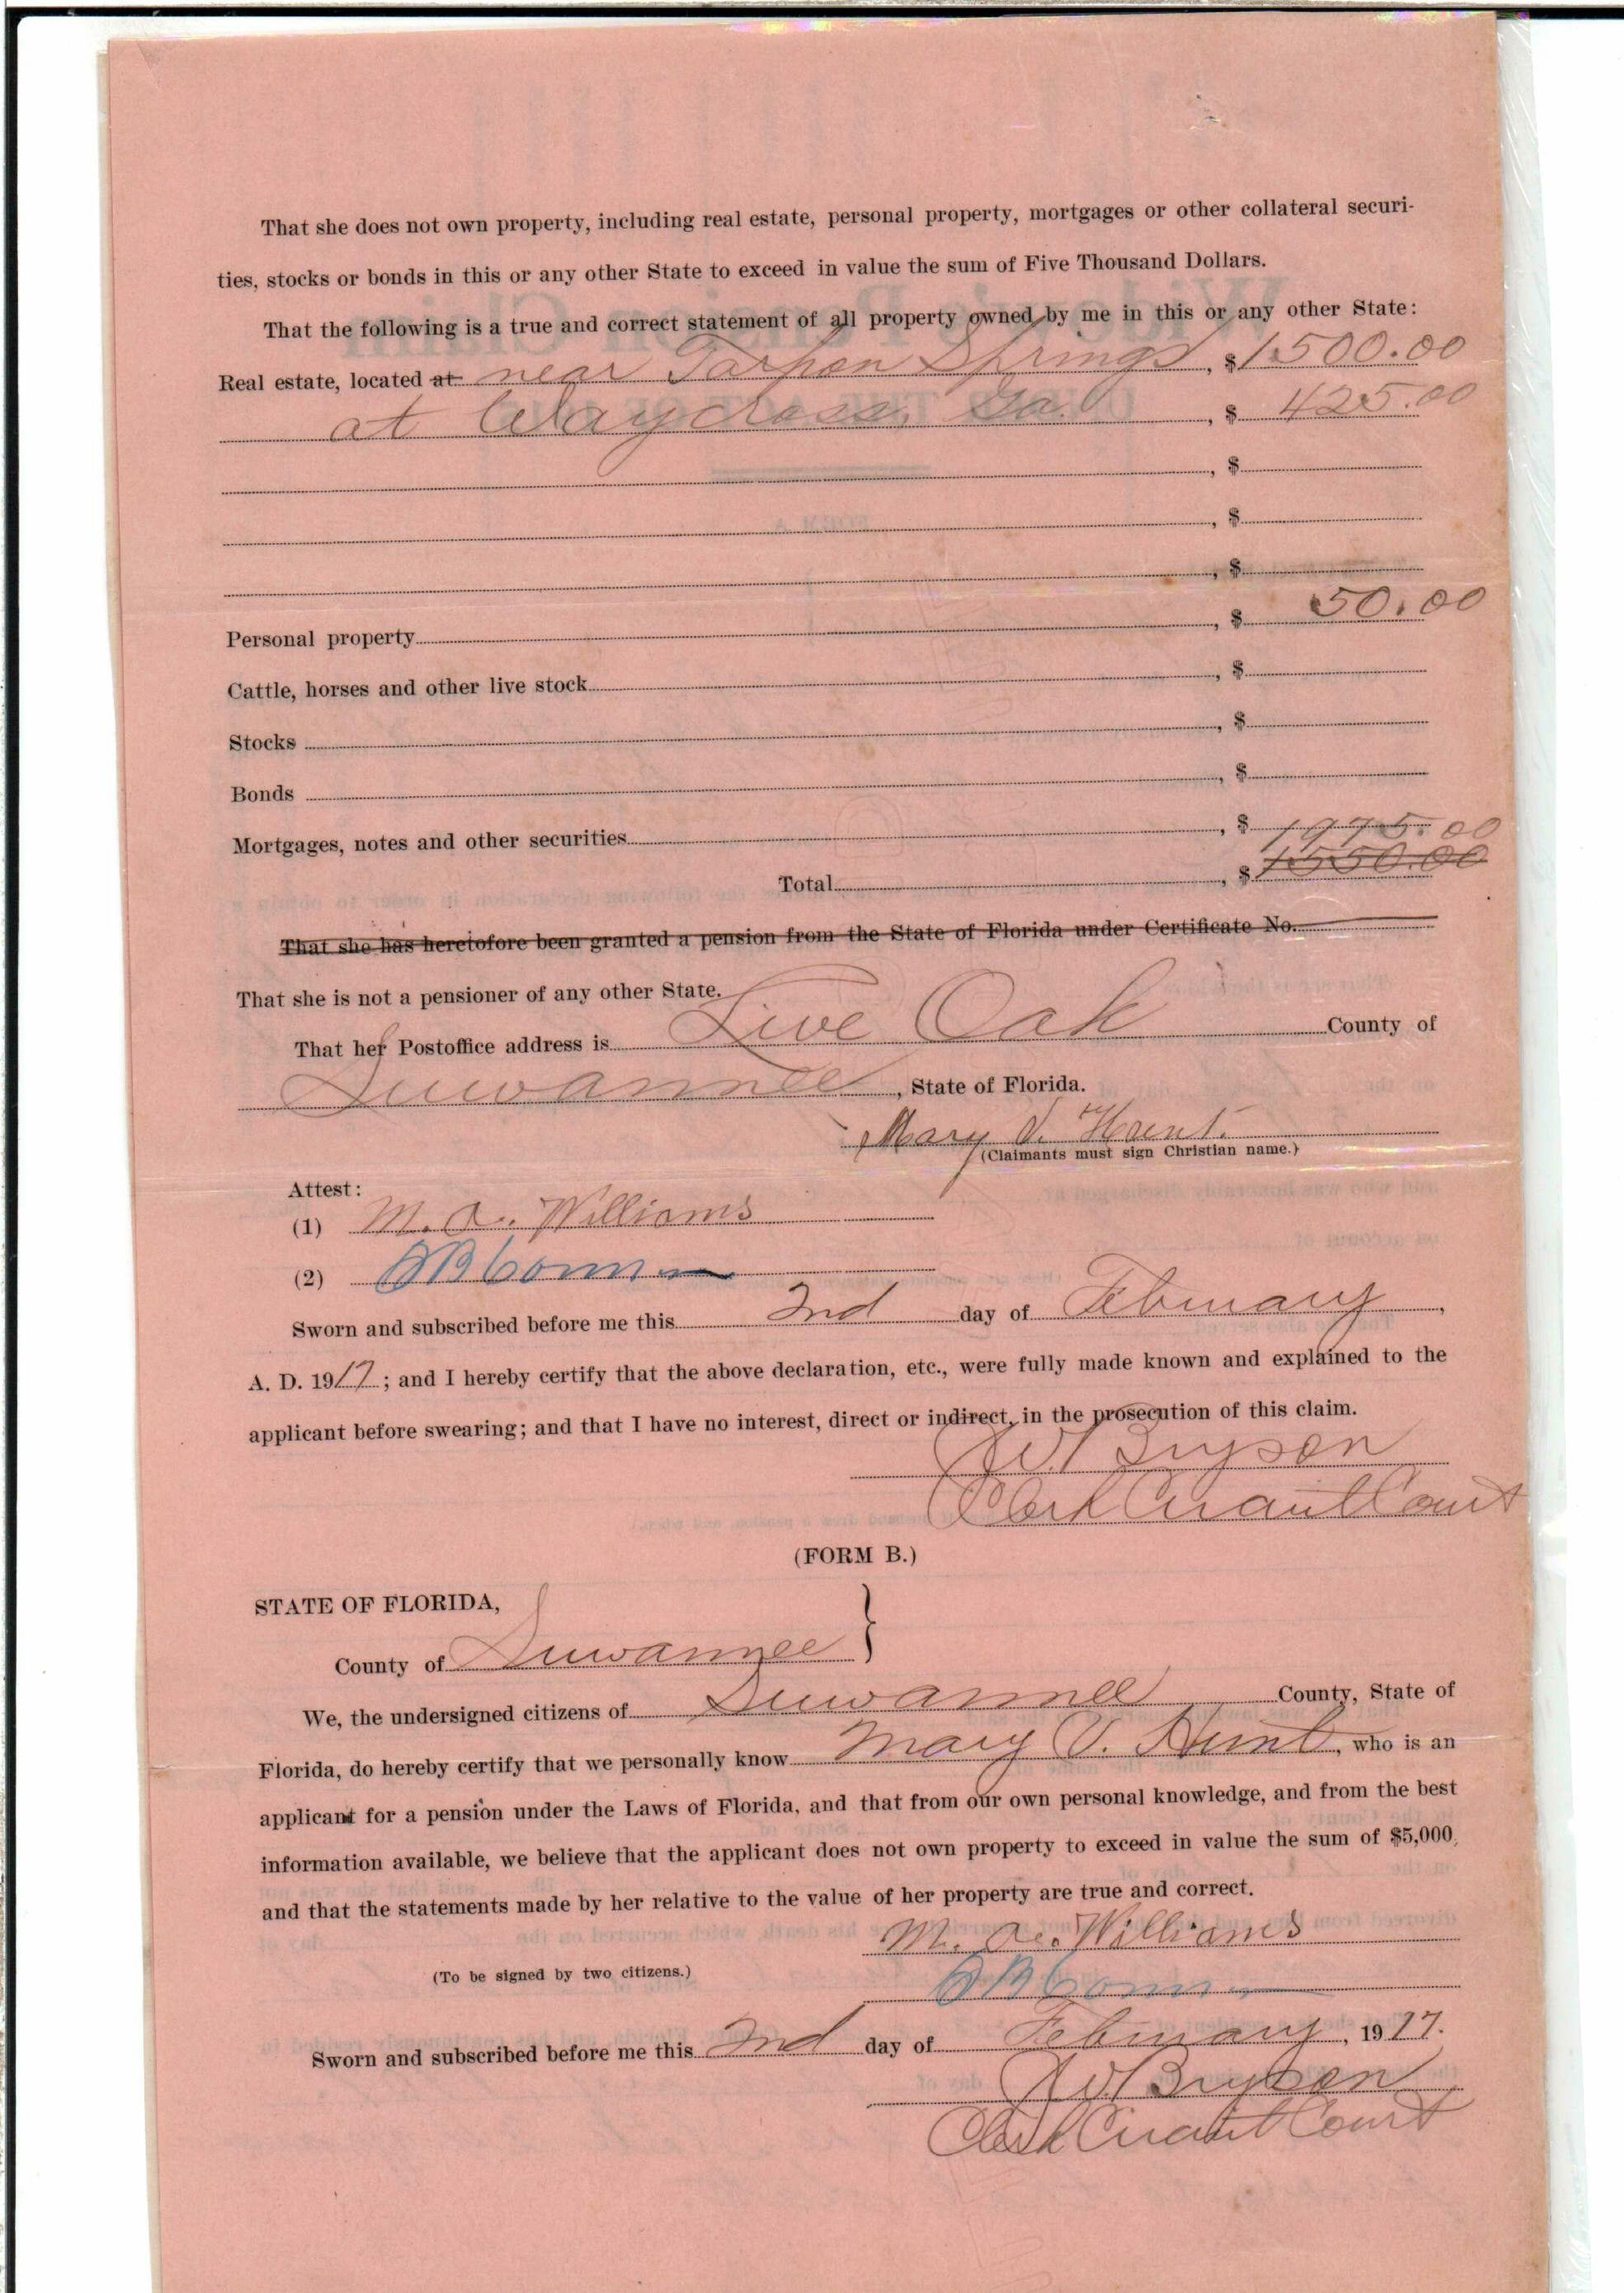 That she does not own property, including real estate, personal property, mortgages or other collateral securi-
ties, stocks or bonds in this or any other State to exceed in value the sum of Five Thousand Dollars.
That the following is a true and correct statement of all property owned by me in this or any other State:
Real estate, located at near Tarpon Springs, $1500.00
at Waycross, Ga., $ 425.00
, $
, $
, $
Personal property, $ 50.00
Cattle, horses and other live stock, $
Stocks, $
Bonds, $
Mortgages, notes and other securities, $ 1975.00
Total, $ 1550.00
That she has heretofore been granted a pension from the State of Florida under Certificate No.
That she is not a pensioner of any other State.
That her Postoffice address is Live Oak County of
Suwannee, State of Florida.
Mary V. Hunt.
(Claimants must sign Christian name.)
Attest:
(1) M. A. Williams
(2)
Sworn and subscribed before me this 2nd day of February,
A. D. 1917; and I hereby certify that the above declaration, etc., were fully made known and explained to the
applicant before swearing; and that I have no interest, direct or indirect, in the prosecution of this claim.
JW Bryson
Clerk Circuit Court
(FORM B.)
STATE OF FLORIDA,
County of Suwannee
We, the undersigned citizens of Suwannee County, State of
Florida, do hereby certify that we personally know Mary V. Hunt, who is an
applicant for a pension under the Laws of Florida, and that from our own personal knowledge, and from the best
information available, we believe that the applicant does not own property to exceed in value the sum of $5,000,
and that the statements made by her relative to the value of her property are true and correct.
M. A. Williams
(To be signed by two citizens.)
Sworn and subscribed before me this 2nd day of February, 1917.
JW Bryson
Clerk Circuit Court